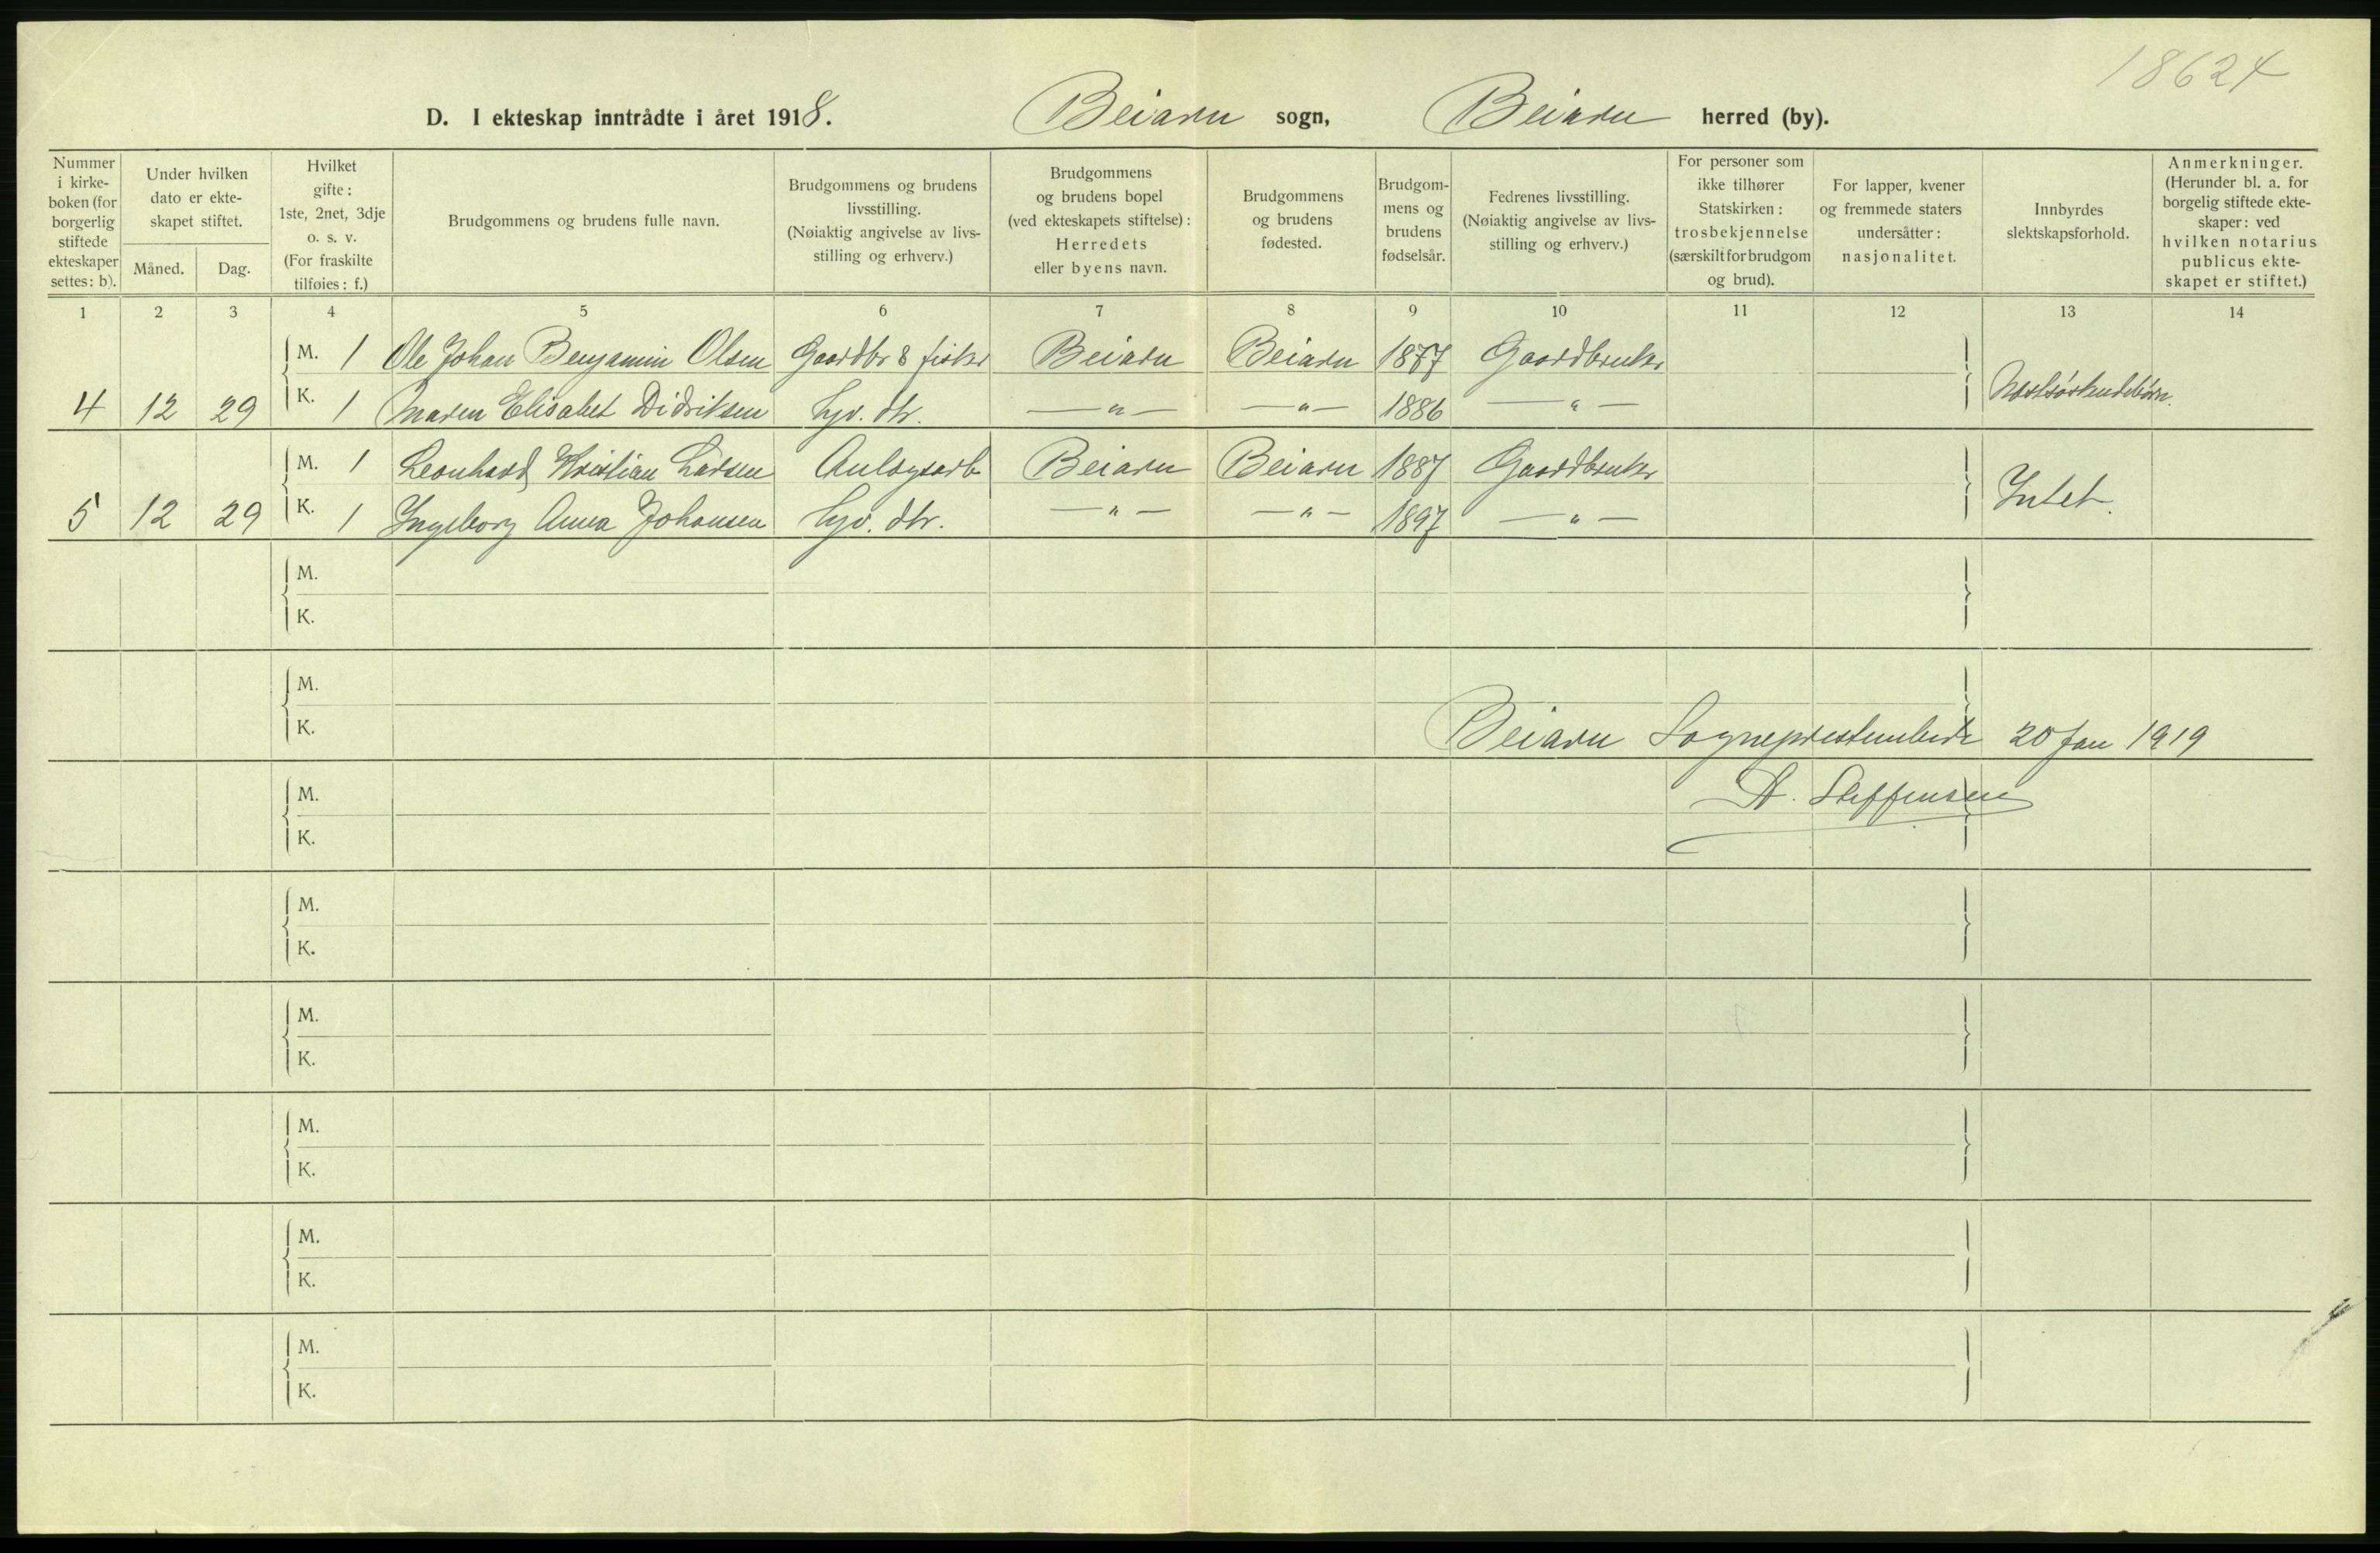 18624
D. I ekteskap inntrådte i året 1918. Beiarn sogn, Beiarn herred (by).
Nummer i kirke- boken (for borgerlig stiftede ekteskaper settes: b).
Under hvilken dato er ekte- skapet stiftet.
Måned. Dag.
Hvilket gifte: 1ste, 2net, 3dje o. s. v. (For fraskilte tilføies: f.)
Brudgommens og brudens fulle navn.
Brudgommens og brudens livsstilling. (Nøiaktig angivelse av livs- stilling og erhverv.)
Brudgommens og brudens bopel (ved ekteskapets stiftelse): Herredets eller byens navn.
Brudgommens og brudens fødested.
Brudgom- mens og brudens fødselsår.
Fedrenes livsstilling. (Nøiaktig angivelse av livs- stilling og erhverv.)
For personer som ikke tilhører Statskirken: trosbekjennelse (særskilt for brudgom og brud).
For lapper, kvener og fremmede staters undersåtter: nasjonalitet.
Innbyrdes slektskapsforhold.
Anmerkninger. (Herunder bl. a. for borgelig stiftede ekte- skaper: ved hvilken notarius publicus ekte- skapet er stiftet.)
1 2 3 4 5 6 7 8 9 10 11 12 13 14
M. 1 Ole Johan Benjamin Olsen Gaardbr & fisker Beiarn Beiarn 1877 Gaardbruker
4 12 29 K. 1 Maren Elisabet Didriksen Hjv. dtr. — " — — " — 1886 — " —
M. 1 Leonhard Kristian Larsen Anlægsarb Beiarn Beiarn 1887 Gaardbruker
5 12 29 K. 1 Ingeborg Anna Johansen Hjv. dtr. — " — — " — 1897 — " — Intet.
M.
K.
M.
K.
Beiarn Sogneprestembede 20 Jan 1919
M.
A. Steffensen
K.
M.
K.
M.
K.
M.
K.
M.
K.
M.
K.